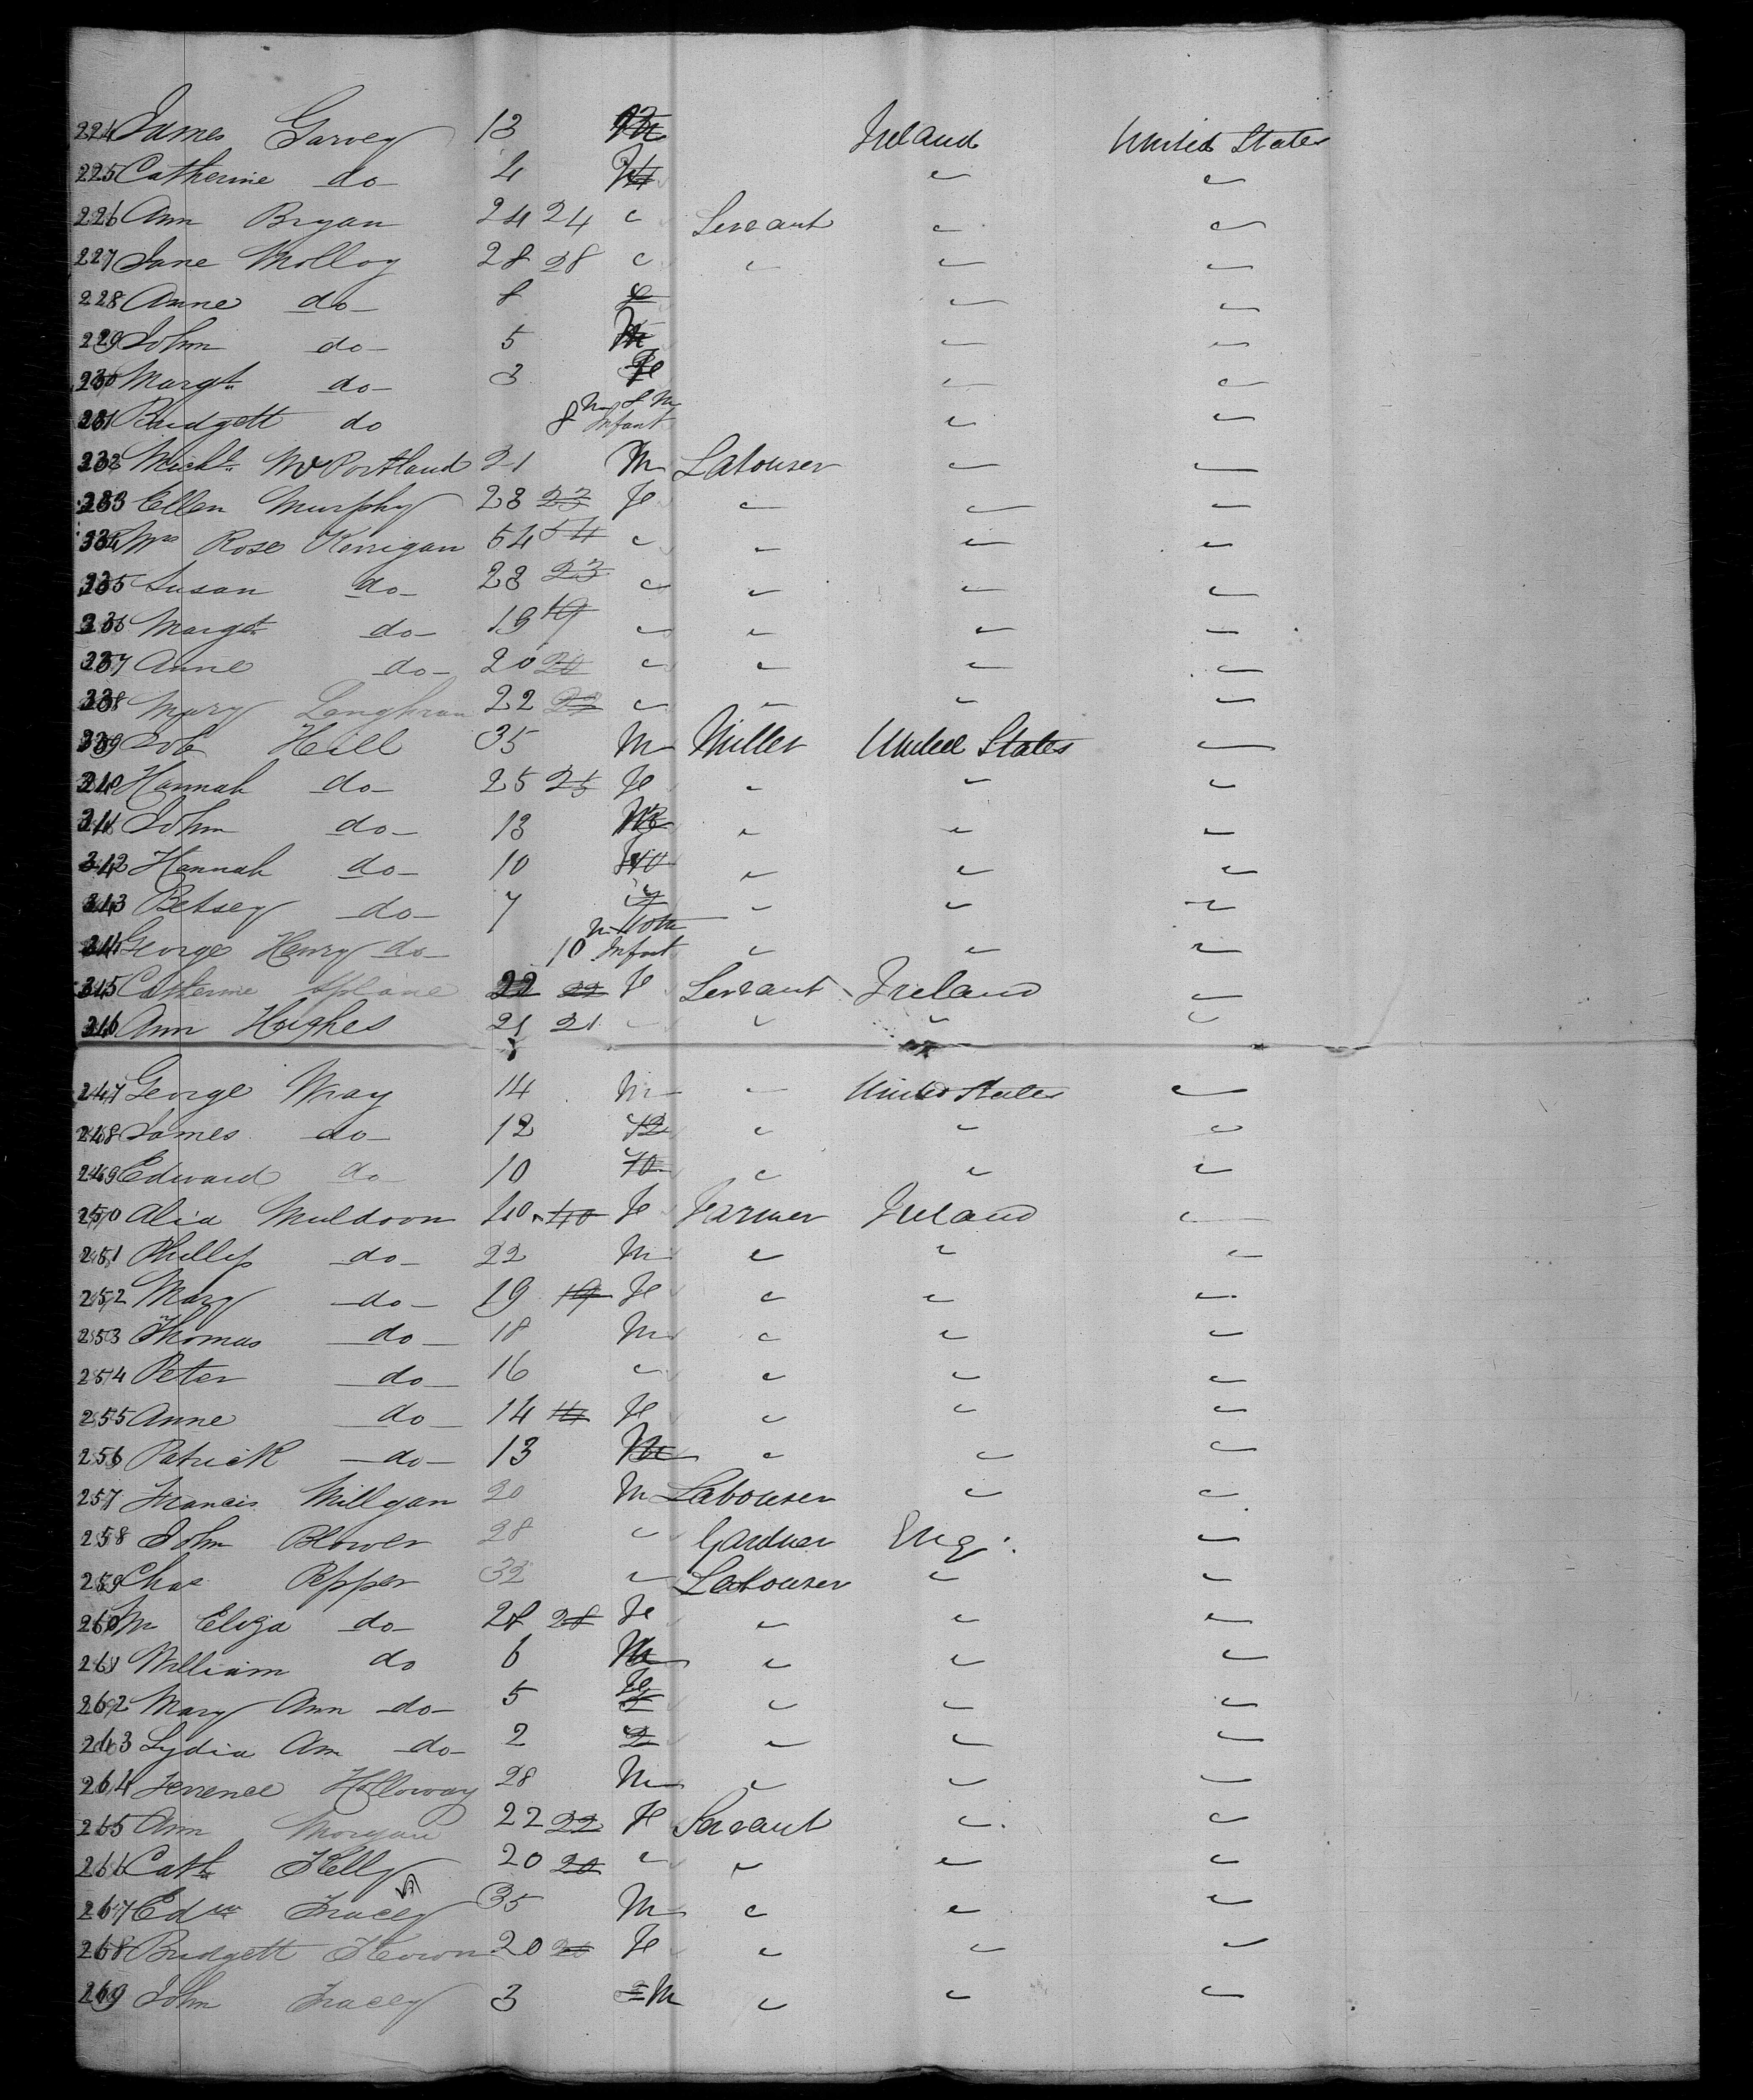 224 James Garvey 13 M Ireland United States
225 Catherine do 4 " "
226 Ann Bryan 24 24 " Servant " "
227 Jane Molloy 28 28 " " " "
228 Anne do 8 " "
229 John do 5 M " "
230 Margt do 3 Fe " "
231 Bridgett do 8 M Infant " "
232 Michl McPortland 21 M Labourer " "
233 Ellen Murphy 23 23 Fe " " "
234 Mrs Rose Kerrigan 54 54 " " " "
235 Susan do 23 23 " " " "
236 Margt do 19 19 " " " "
237 Anne do 20 20 " " " "
238 Mary Loughran 22 22 " " " "
239 Job Hill 35 M Miller United States "
240 Hannah do 25 25 Fe " " "
241 John do 13 M " " "
242 Hannah do 10 Fe " " "
243 Betsey do 7 " " " "
244 George Henry do 10 M Infant " " "
245 Catherine 22 22 Fe Servant Ireland "
246 Ann Hughes 21 21 " " " "
247 George Wray 14 M " United States "
248 James do 12 12 " " "
249 Edward do 10 10 " " "
250 Alia Muldoon 40 40 Fe Farmer Ireland "
251 Phillip do 22 M " " "
252 Mary do 19 19 Fe " " "
253 Thomas do 18 M " " "
254 Peter do 16 " " " "
255 Anne do 14 14 Fe " " "
256 Patrick do 13 M " " "
257 Francis Millgan 20 M Labourer " "
258 John Blower 28 " Gardner Eng. "
259 Chas Pepper 32 " Labourer " "
260 M Eliza do 28 28 Fe " " "
261 William do 6 M " " "
262 Mary Ann do 5 Fe " " "
263 Lydia Am do 2 2 " " "
264 Terrence Holloway 28 M " " "
265 Ann Morgan 22 22 Fe Servant " "
266 Cath Kelly 20 20 " " " "
267 Edw Tracey 35 M " " "
268 Bridgett Keown 20 20 Fe " " "
269 John Tracey 3 M " " "